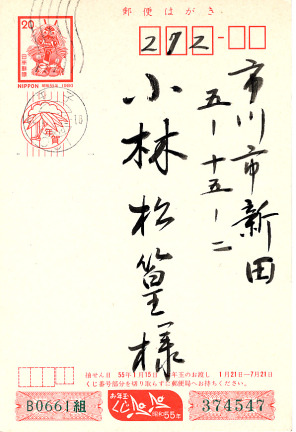 郵便はがき
20
日本郵便
NIPPON
年賀
272-
市川市新田
五ー十五ー二
小林松篁様
抽せん日 55年1月15日 お年玉のお渡し 1月21日ー7月21日
くじ番号部分を切り取らずに郵便局へお持ちください。
B0661組
お年玉
くじ
昭和55年
374547